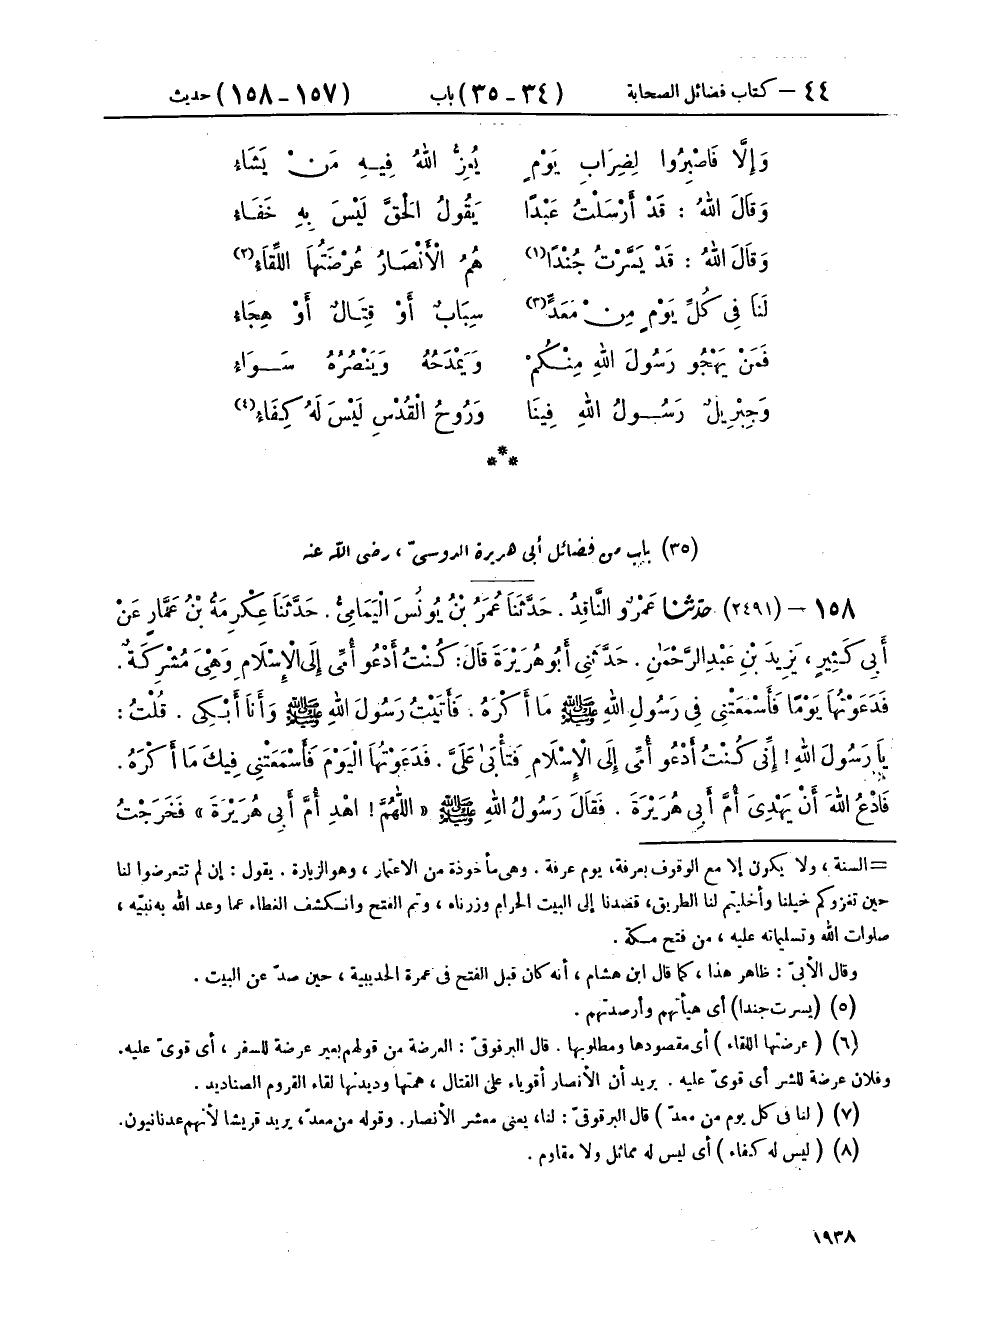 ٤٤ – كتاب فضائل الصحابة (٣٤ - ٣٥) باب (١٥٧ - ١٥٨) حديث
وَإِلَّا فَاصْبِرُوا لِضِرَابِ يَوْمٍ يُعِزُّ اللهُ فِيهِ مَنْ يَشَاءُ
وَقَالَ اللهُ : قَدْ أَرْسَلْتُ عَبْدًا يَقُولُ الْحَقَّ لَيْسَ بِهِ خَفَاءُ
وَقَالَ اللهُ : قَدْ يَسَّرْتُ جُنْدًا(١) هُمُ الْأَنْصَارُ عُرْضَتُهَا اللِّقَاءُ(٢)
لَنَا فِي كُلِّ يَوْمٍ مِنْ مَعَدٍّ(٣) سِبَابٌ أَوْ قِتَالٌ أَوْ هِجَاءُ
فَمَنْ يَهْجُو رَسُولَ اللهِ مِنْكُمْ وَيَمْدَحُهُ وَيَنْصُرُهُ سَوَاءُ
وَجِبْرِيلٌ رَسُولُ اللهِ فِينَا وَرُوحُ الْقُدْسِ لَيْسَ لَهُ كِفَاءُ(٤)
***
(٣٥) باب من فضائل أبى هريرة الدوسىّ ، رضى الله عنه
١٥٨ – (٢٤٩١) حَدَّثَنَا عَمْرٌو النَّاقِدُ . حَدَّثَنَا عُمَرُ بْنُ يُونُسَ الْيَمَامِيُّ . حَدَّثَنَا عِكْرِمَةُ بْنُ عَمَّارٍ عَنْ
أَبِي كَثِيرٍ ، يَزِيدَ بْنِ عَبْدِ الرَّحْمَٰنِ . حَدَّثَنِي أَبُو هُرَيْرَةَ قَالَ: كُنْتُ أَدْعُو أُمِّي إِلَى الْإِسْلَامِ وَهِيَ مُشْرِكَةٌ .
فَدَعَوْتُهَا يَوْمًا فَأَسْمَعَتْنِي فِي رَسُولِ اللهِ ﷺ مَا أَكْرَهُ . فَأَتَيْتُ رَسُولَ اللهِ ﷺ وَأَنَا أَبْكِي . قُلْتُ :
يَا رَسُولَ اللهِ ! إِنِّي كُنْتُ أَدْعُو أُمِّي إِلَى الْإِسْلَامِ فَتَأْبَىٰ عَلَيَّ . فَدَعَوْتُهَا الْيَوْمَ فَأَسْمَعَتْنِي فِيكَ مَا أَكْرَهُ .
فَادْعُ اللهَ أَنْ يَهْدِيَ أُمَّ أَبِي هُرَيْرَةَ . فَقَالَ رَسُولُ اللهِ ﷺ « اللَّهُمَّ ! اهْدِ أُمَّ أَبِي هُرَيْرَةَ » فَخَرَجْتُ
= السنة ، ولا يكون إلا مع الوقوف بعرفة، يوم عرفة . وهى مأخوذة من الاعتمار ، وهو الزيارة . يقول : إن لم تتعرضوا لنا
حين تغزوكم خيلنا وأخليتم لنا الطريق، قصدنا إلى البيت الحرام وزرناه ، وتم الفتح وانكشف الغطاء عما وعد الله به نبيّه ،
صلوات الله وتسليماته عليه ، من فتح مكة .
وقال الأبىّ : ظاهر هذا ، كما قال ابن هشام ، أنه كان قبل الفتح فى عمرة الحديبية ، حين صدّ عن البيت .
(٥) (يسرت جندا) أى هيأتهم وأرصدتهم .
(٦) ( عرضتها اللقاء ) أى مقصودها ومطلوبها . قال البرقوقىّ : العرضة من قولهم بعير عرضة للسفر ، أى قوىّ عليه.
وفلان عرضة للشر أى قوىّ عليه . يريد أن الأنصار أقوياء على القتال ، همتها وديدنها لقاء القروم الصناديد .
(٧) ( لنا فى كل يوم من معدّ ) قال البرقوقىّ : لنا، يعنى معشر الأنصار. وقوله من معدّ، يريد قريشا لأنهم عدنانيون.
(٨) ( ليس له كفاء ) أى ليس له مماثل ولا مقاوم .
١٩٣٨